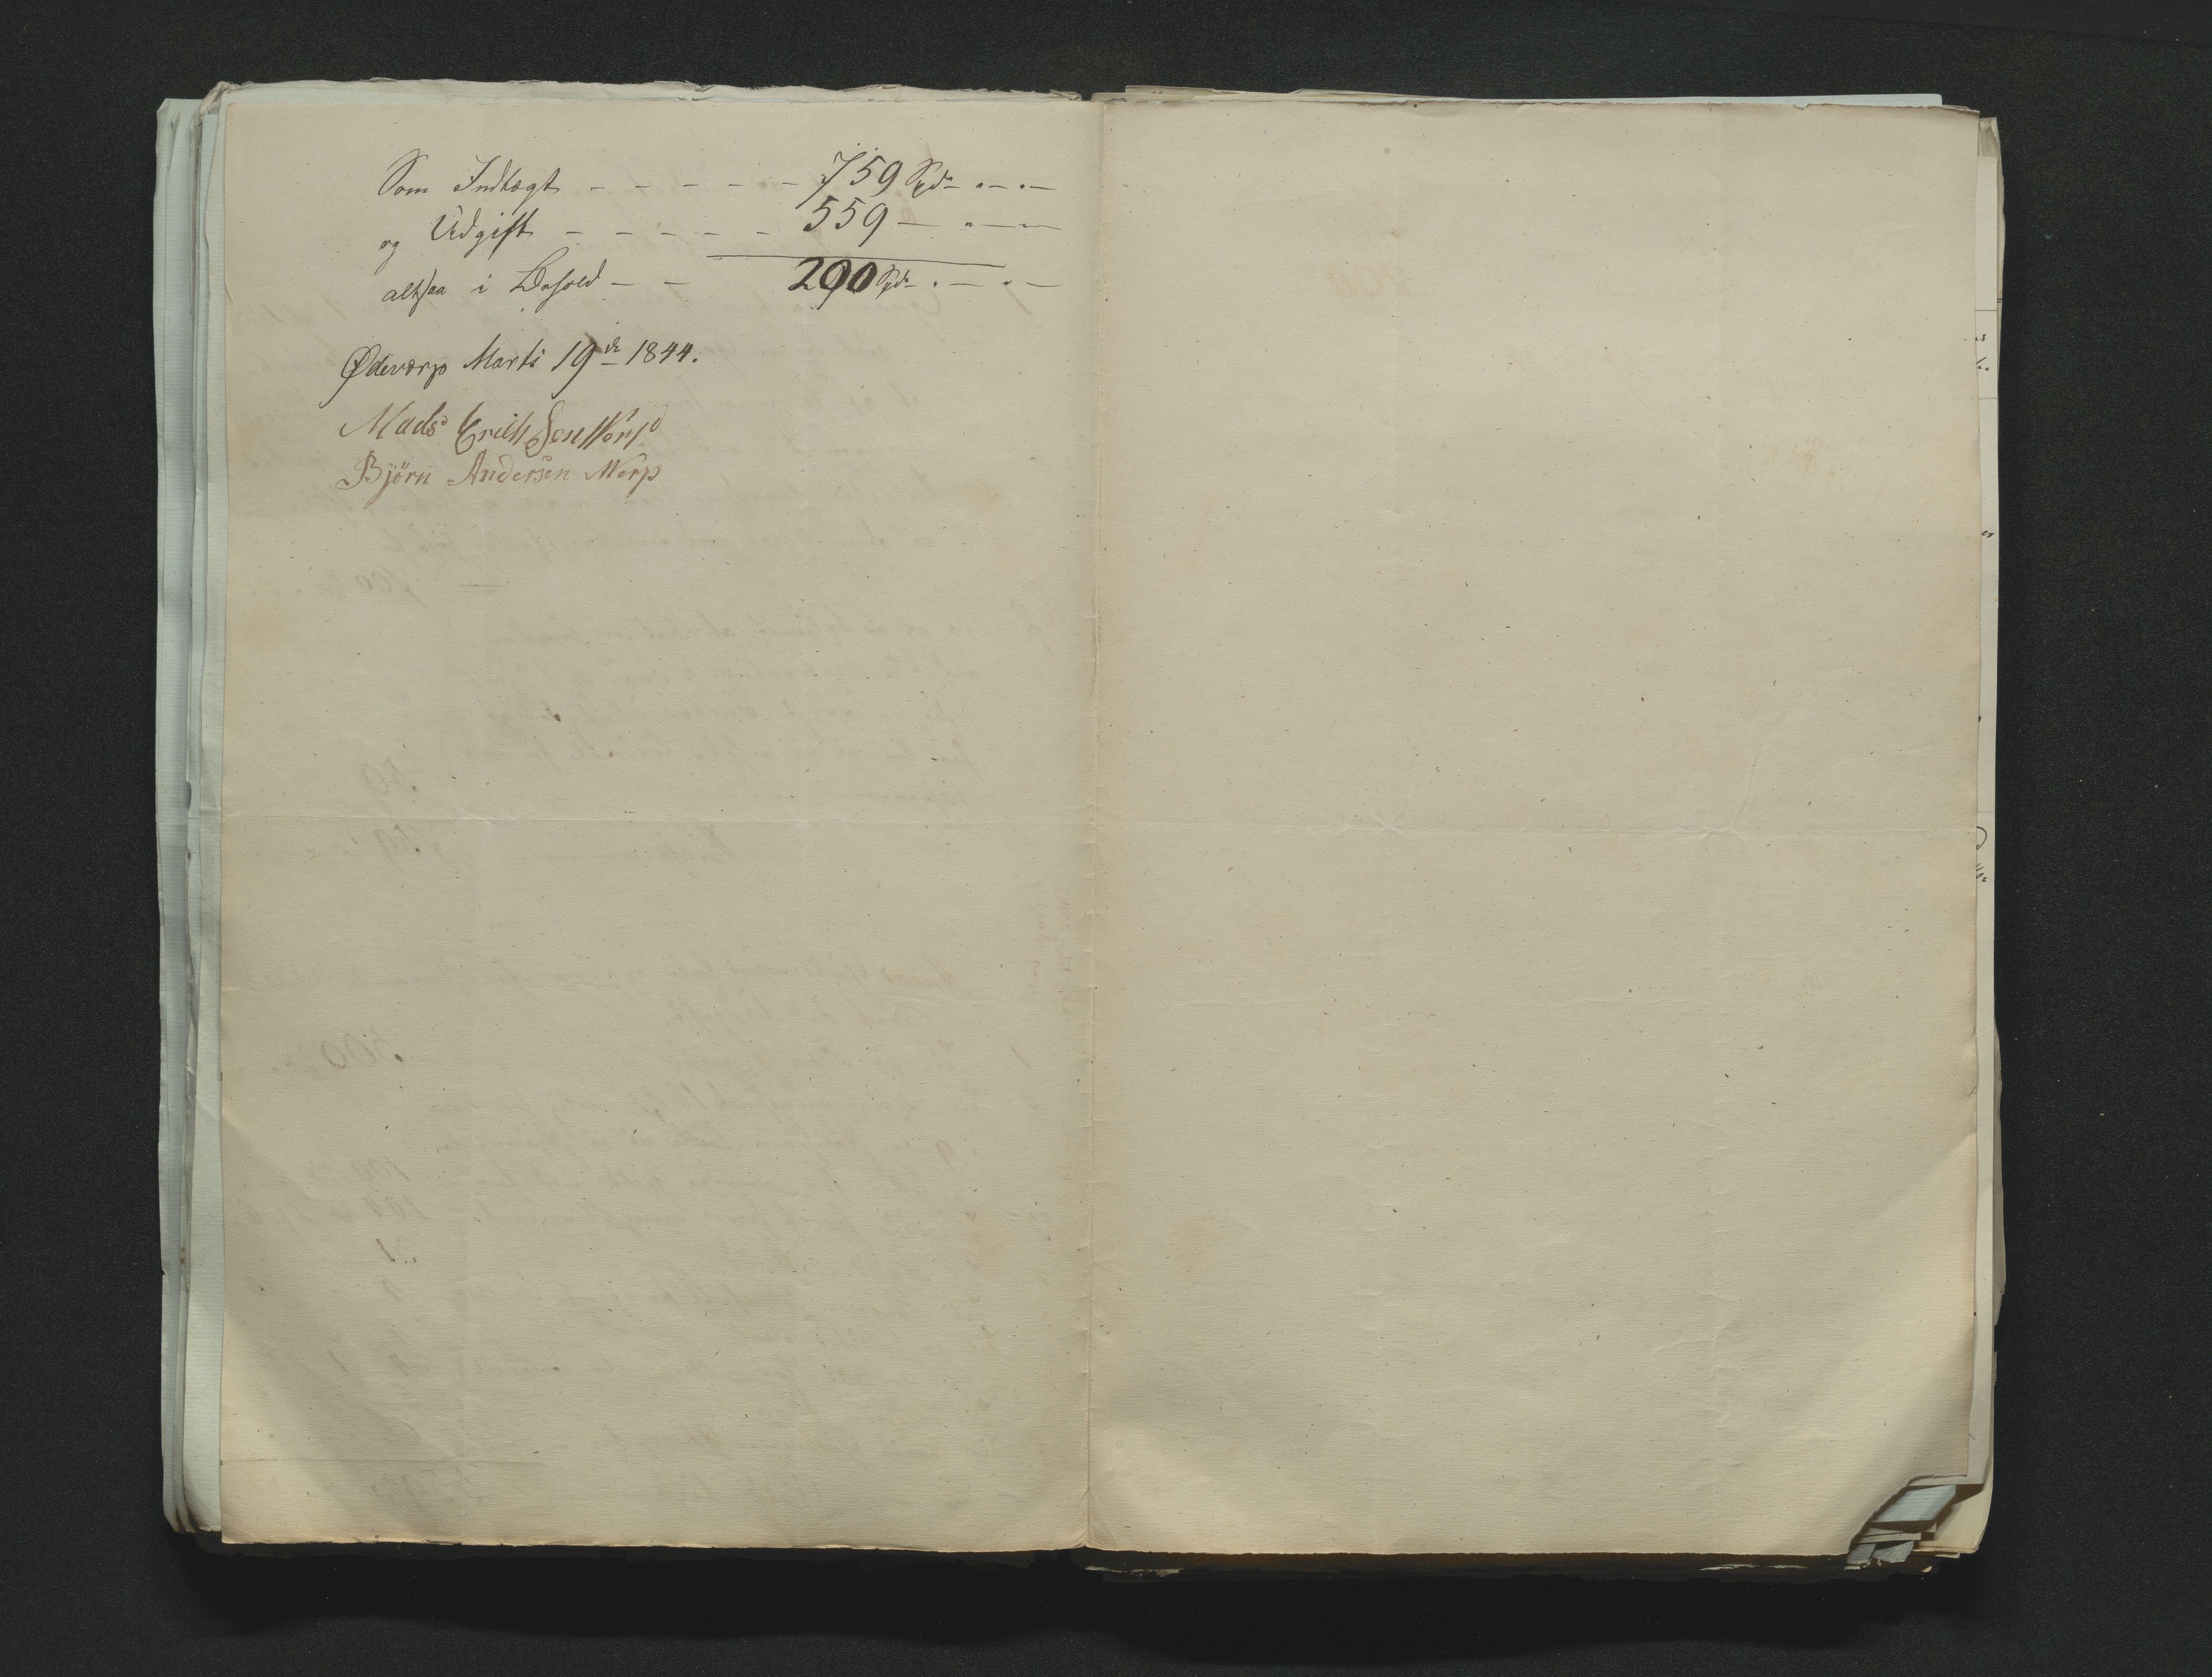 Som Indtægt - - - - - - 759 Spd - " - " -
og Udgift - - - - - 559 - " - " -
altsaa i Behold - - 200 Spd - " - " -
Ødeverp Marts 19de 1844.
Mads Erichsen Werp
Bjørn Andersen Werp